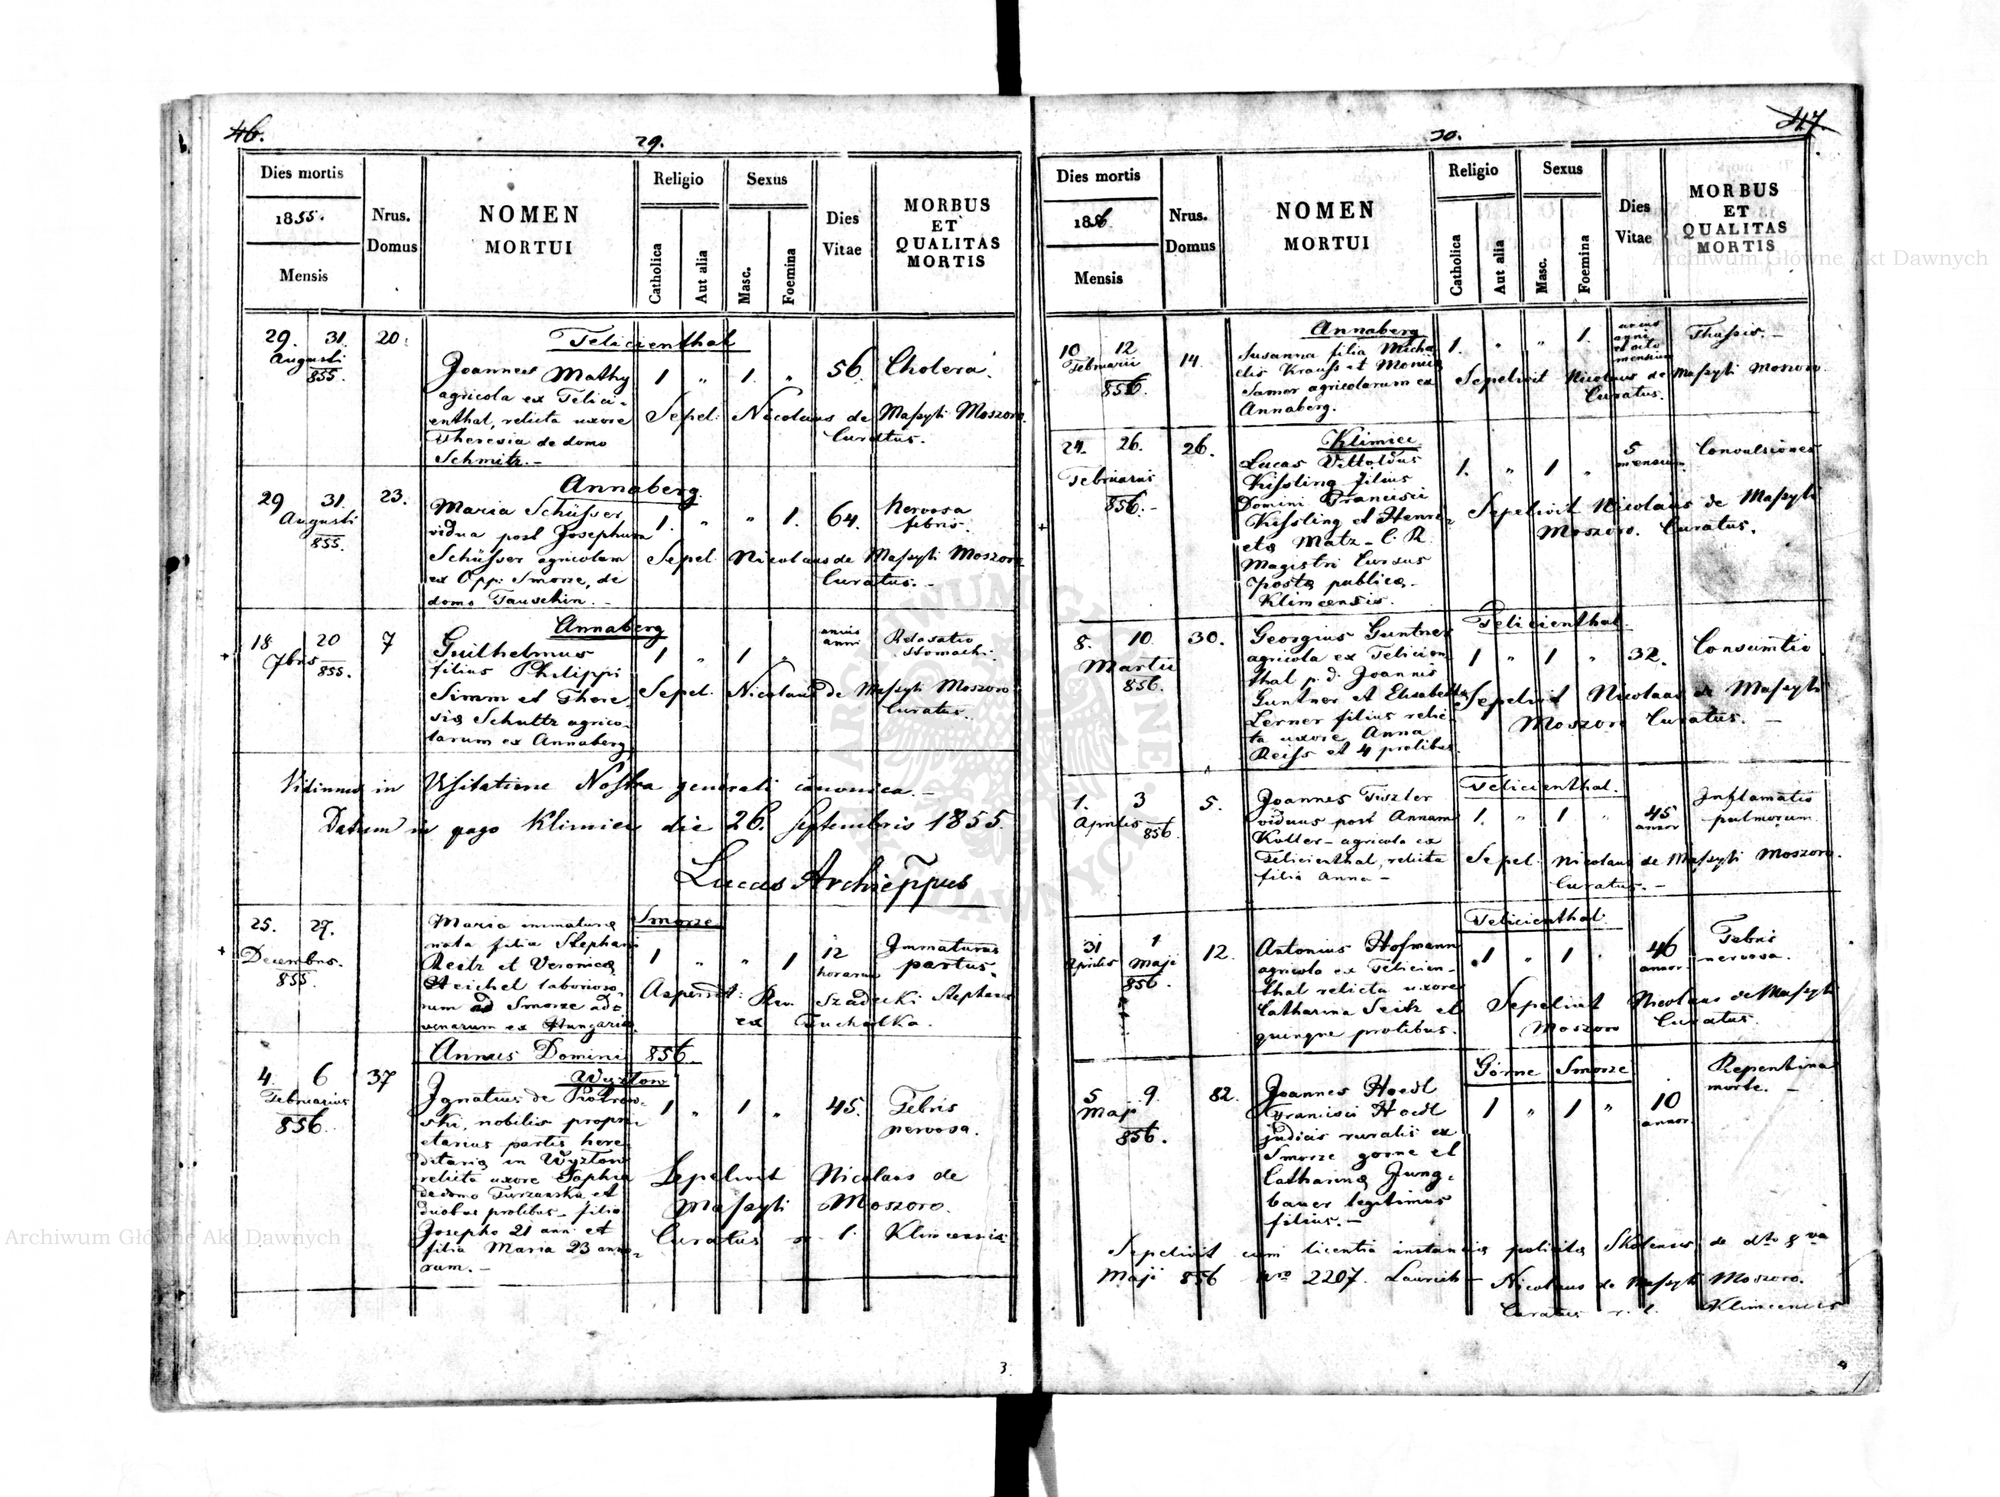 46.
29.
Dies mortis
1855.
Mensis
Nrus.
Domus
NOMEN
MORTUI
Religio
Catholica
Aut alia
Sexus
Masc.
Foemina
Dies
Vitae
MORBUS
ET
QUALITAS
MORTIS
Felicienthal
29. 31. 20.
Augusti
855.
Joannes Mathy
agricola ex Felici-
enthal, relicta uxore
Theresia de domo
Schmitz.-
1 „ 1. „ 56. Cholera.
Sepel: Nicolaus de Maszyli Moszoro
Curatus.
Annaberg.
29 31. 23.
Augusti
855.
Maria Schüsser
vidua post Josephum
Schüsser agricolam
ex Opp: Smorze, de
domo Tauschin.-
1. „ „ 1. 64. Nervosa
febris.
Sepel Nicolaus de Maszyli Moszoro
Curatus.-
Annaberg
18 20 7
7bris
855.
Guilhelmus
filius Philippi
Simm et There
siæ Schultz agrico-
larum ex Annaberg
1 „ 1 „
stomachi.
Sepel. Nicolaus de Maszyli Moszoro
Curatus.
Vidimus in Visitatione Nostra generali canonica.-
Datum in pago Klimiec die 26. Septembris 1855.
Lucas Archieppus
Smorze
25. 29.
Decembris.
855.
Maria immature
nata filia Stephani
Reitz et Veronicæ
Steichel laborioso-
rum ad Smorze ad-
venarum ex Hungaria.
1 „ „ 1 12
horarum
Immaturus
partus.
Rev. Szadecki Stephanus
ex Tuchalka.
Annus Domini 856.
Wyzlow
4. 6 37
Februarius
856.
Ignatius de Piotrow-
ski, nobilis propri-
etarius partis here-
ditariæ in Wyzlow
relicta uxore Sophia
de domo Turzanska, et
duobus prolibus filio
Josepho 21 ann et
filia Maria 23 anno-
rum.-
1 „ 1 „ 45. Febris
nervosa.
Sepelivit Nicolaus de
Maszyli Moszoro.
Curatus r. l. Klimcensis
3
47.
30.
Dies mortis
1856.
Mensis
Nrus.
Domus
NOMEN
MORTUI
Religio
Catholica
Aut alia
Sexus
Masc.
Foemina
Dies
Vitae
MORBUS
ET
QUALITAS
MORTIS
Annaberg
10 12 14.
Februarii
856.
Susanna filia Micha
elis Krauss et Monica
Samer agricolarum ex
Annaberg.
1. „ „ 1.
et octo
mensium
Sepelivit Nicolaus de Maszyli Moszoro
Curatus.
Klimiec
24. 26. 26.
Februarius
856.-
Lucas Vittoldus
Kissling filius
Domini Francisci
Kissling et Henri-
etæ Matz- C. R.
Magistri Cursus
postæ publicæ
Klimcensis.
1. „ 1 „ 5
mensium.
Convulsiones
Sepelivit Nicolaus de Maszyli
Moszoro. Curatus.
Felicienthal.
8. 10. 30.
Martii
856.
Georgius Guntner
agricola ex Felicien
thal p. d. Joannis
Guntner et Elisabethæ
Lerner filius relic-
ta uxore Anna
Reiss et 4 prolibus.
1 „ 1 „ 32. Consumtio
Sepelivit Nicolaus de Maszyli
Moszoro Curatus.-
Felicienthal.
1. 3 5.
Aprilis 856.
Joannes Tiszler
viduus post Annam
Koller- agricola ex
Felicienthal, relicta
filia Anna-
1. „ 1 „ 45
annor
Inflamatio
pulmorum.
Sepel: Nicolaus de Maszyli Moszoro.
Curatus.-
Felicienthal
31 1 12.
Aprilis Maji
856.
Antonius Hofmann
agricola ex Felicien-
thal relicta uxore
Catharina Seitz et
quinque prolibus.
1 „ 1 „ 46
annor.
Febris
nervosa.
Sepelivit Nicolaus de Maszyli
Moszoro Curatus.
Górne Smorze
5 9. 82.
Maji
856.
Joannes Hoedl
Francisci Hoedl
judicis ruralis ex
Smorze gorne et
Catharinæ Jung-
bauer legitimus
filius.-
1 „ 1 „ 10
annor.
Repentina
morte.-
Sepelivit cum licentia instanciæ politicæ Skolensis de dto 8va
Maji 856 Nro 2207. Nicolaus de Maszyli Moszoro.
Curatus r. l. Klimcensis
Archiwum Główne Akt Dawnych
Archiwum Główne Akt Dawnych
ARCHIWUM GŁÓWNE AKT DAWNYCH